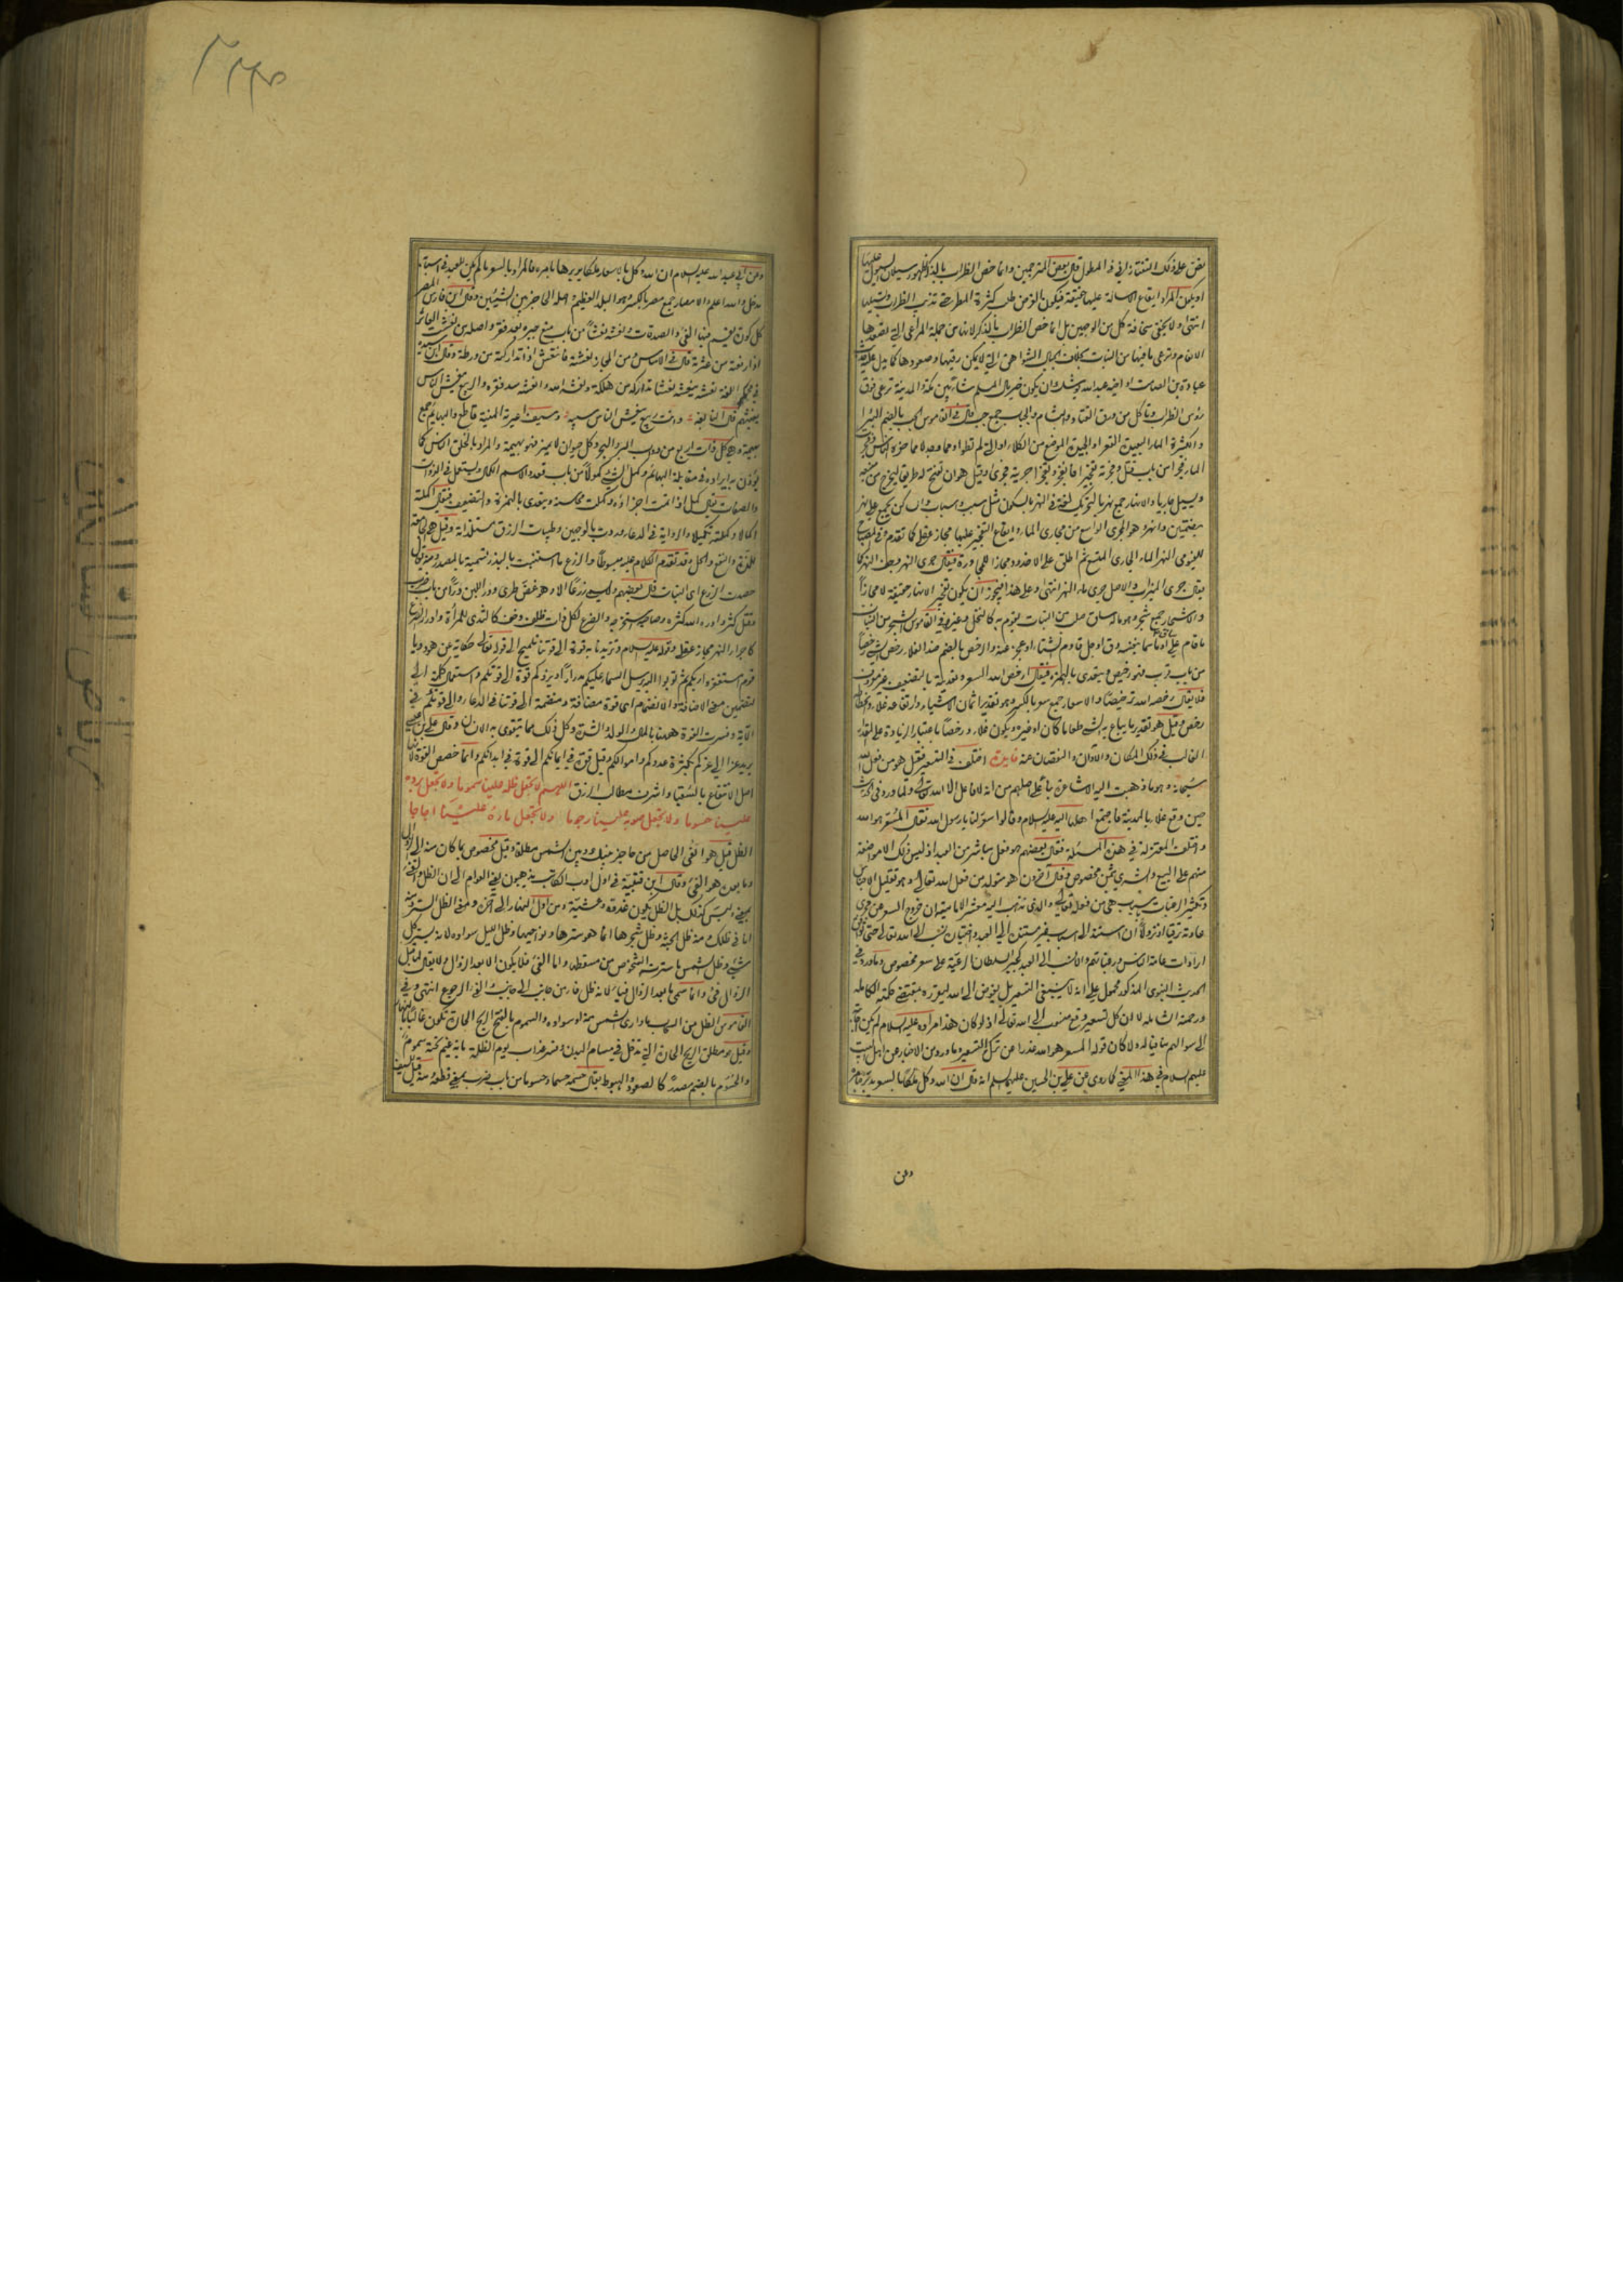 نص على ذلك التفتازاني في المطول قال بعض المترجمين وانما خص الظراب بالذكر لظهور سيلان السيول عليها
او يكون المراد ايقاع الاسالة عليها حقيقة فيكون بالزمن طلب كثرة المطر حتى تذيب الظراب وتسيلها
انتهى ولا يخفى سخافة كل من الوجهين بل انما خص الظراب بالذكر لانها من جملة المراعي التي تصعدها
الانعام وترعى ما فيها من النبات بخلاف الجبال الشواهق التي لا يمكن رقيها وصعودها كما يدل عليه
عبادة بن الصامت يوشك ان يكون خير مال المسلم شاء بين مكة والمدينة ترعى فوق
رؤس الظراب وتأكل من ورق القتاد والبشام والجباب جمع جب قال في القاموس الجب بالضم البئر او
والكثيرة الماء البعيدة القعر او الجيدة الموضع من الكلاء او التي لم تطو او مما وجد لا مما حفره الناس وفجرت
الماء فجرا من باب قتل وفجرته تفجيرا فانفجر وتفجر اجريته فجرى وقيل هو ان تفتح له طريقا ليخرج من منبعه
ويسيل جاريا والانهار جمع نهر بالتحريك لغة في النهر بالسكون مثل سبب واسباب والساكن يجمع على نهر
بضمتين وانهر وهو المجرى الواسع من مجاري الماء وايقاع التفجير عليها مجاز عقلي كما تقدم وفي المصباح
للفيومي النهر الماء الجاري المتسع ثم اطلق على الاخدود مجازا للمجاورة فيقال جرى النهر وجف النهر كما
يقال جرى الميزاب والاصل جرى ماء النهر انتهى وعلى هذا فيجوز ان يكون تفجير الانهار حقيقة لا مجازا
والاشجار جمع شجر وهو ما له ساق صلب من النبات يقوم به كالنخل وغيره وفي القاموس الشجر من النبات
ما قام على ساق او ما سما بنفسه دق او جل قاوم الشتاء او عجز عنه والرخص بالضم ضد الغلاء رخص الشيء رخصا
من باب قرب فهو رخيص ويتعدى بالهمزة فيقال ارخص الله السعر وتعديته بالتضعيف غير معروف
فلا يقال رخصه الله ترخيصا والاسعار جمع سعر بالكسر وهو تقدير اثمان الاشياء وارتفاعه غلاء وانحطاطه
رخص وقيل هو تقدير ما يباع به الشيء طعاما كان او غيره ويكون غلاء ورخصا باعتبار الزيادة على المقدار
الغالب في ذلك المكان والاوان والنقصان عنه فايدة اختلف في التسعير فقيل هو من فعل الله
سبحانه وهو ما ذهبت اليه الاشاعرة بناء على اصلهم من انه لا فاعل الا الله تعالى ولما ورد في الحديث
حين وقع غلاء بالمدينة فاجتمع اهلها اليه عليه السلام وقالوا سعر لنا يا رسول الله فقال المسعر هو الله
واختلف المعتزلة في هذه المسئلة فقال بعضهم هو فعل مباشر من العبد اذ ليس ذلك الا مواضعة
منهم على البيع والشرى بثمن مخصوص وقال آخرون هو متولد من فعل الله تعالى وهو تقليل الاجناس
وتكثير الرغبات بسبب هي من فعله تعالى والذي تذهب اليه معشر الامامية ان خروج السعر عن مجرى
عادته ترقيا او نزولا ان استند الى اسباب غير مستندة الى العبد واختياره نسب الى الله تعالى
ارادات عامة الناس ورغباتهم والا نسب الى العبد كجبر السلطان الرعية على سعر مخصوص وما ورد في
الحديث النبوي المذكور محمول على انه لا ينبغي التسعير بل يفوض الى الله ليقرره بمقتضى حكمته الكاملة
ورحمته الشاملة لا ان كل تسعير وقع منسوب الى الله تعالى اذ لو كان هذا مراده عليه السلام لم يكن
الى سؤالهم منافيا له ولا كان قوله المسعر هو الله عذرا عن ترك التسعير وما ورد من الاخبار عن اهل البيت
عليهم السلام في هذا المعنى كما روي عن علي بن الحسين عليهما السلم انه قال ان الله وكل ملكا بالسعر يدبره بامره
وعن
وعن ابي عبد الله عليه السلام ان الله وكل بالاسعار ملكا يدبرها بامره فالمراد بالسعر ما لم يكن للعبد في اسبابه
مدخل والله اعلم والامصار جمع مصر بالكسر وهو البلد العظيم اصله الحاجز بين الشيئين وقال ابن فارس المصر
كل كورة يقسم فيها الفيء والصدقات ونعشه نعشا من باب منع جبره بعد فقر واصله من نعشت العاثر
اذا رفعته من عثرته قال في الاساس ومن المجاز نعشته فانتعش اذا تداركته من ورطة وقال ابن سيدة
في محكم اللغة نعشه ينعشه نعشا تداركه من هلكة ونعشه الله وانعشه سد فقره والربيع ينعش الناس
ينعشهم قال النابغة وانت ربيع ينعش الناس سيبه وسيف اعيرته المنية قاطع والبهائم جمع
بهيمة وهي كل ذات اربع من دواب البر والبحر وكل حيوان لا يميز فهو بهيمة والمراد بالخلق الناس كما
يؤذن به ايراده في مقابلة البهائم وكمل الشيء كمولا من باب قعد والاسم الكمال ويستعمل في الذوات
والصفات يقال كمل اذا تمت اجزاؤه وكملت محاسنه ويتعدى بالهمزة والتضعيف فيقال اكملته
اكمالا وكملته تكميلا والرواية في الدعاء وردت بالوجهين وطيبات الرزق مستلذاته وقيل
حصدت الزرع اي النبات قال بعضهم ولا يسمى زرعا الا وهو غض طري ودر اللبن درا من باب ضرب
وقتل كثر وادره الله كثره وصاحبه استخرجه والضرع لكل ذات ظلف وخف كالثدي للمراة وادرار الضرع
كاجراء النهر مجاز عقلي وقوله عليه السلام وتزيدنا به قوة الى قوتنا تلميح الى قوله تعالى حكاية عن هود ويا
قوم استغفروا ربكم ثم توبوا اليه يرسل السماء عليكم مدرارا ويزدكم قوة الى قوتكم واستعمال كلمة الى
لتضمين معنى الاضافة والانضمام اي قوة مضافة ومنضمة الى قوتنا في الدعاء والى قوتكم في
الآية وفسرت القوة ههنا بالمال والولد والشدة وكل ذلك مما يتقوى به الانسان وقال علي بن عيسى
يريد عزا الى عزكم بكثرة عددكم واموالكم وقيل قوة في ايمانكم الى قوة في ابدانكم وانما خص القوة لانها
اصل الانتفاع بالسقيا واشرف مطالب الرزق اللهم لا تجعل ظله علينا سموما ولا تجعل برده
علينا حسوما ولا تجعل صوبه علينا رجوما ولا تجعل ماءه علينا اجاجا
الظل قيل هو الفيء الحاصل من حاجز بينك وبين الشمس مطلقا وقيل مخصوص بما كان منه الى الزوال
وما بعده هو الفيء وقال ابن قتيبة في اول ادب الكاتب يذهبون يعني العوام الى ان الظل والفيء
بمعنى وليس كذلك بل الظل يكون غدوة وعشية ومن اول النهار الى آخره ومعنى الظل الستر ومنه
انا في ظلك ومنه ظل الجنة وظل شجرها انما هو سترها ونواحيها وظل الليل سواده لانه يستر كل
شيء وظل الشمس ما سترته الشخوص من مسقطها واما الفيء فلا يكون الا بعد الزوال ولا يقال لما قبل
الزوال فيء وانما سمي ما بعد الزوال فيئا لانه ظل فاء من جانب الى جانب الفيء الرجوع انتهى وفي
القاموس الظل من السحاب ما وارى الشمس منه او سواده والسموم بالفتح الريح الحارة تكون غالبا بالنهار
وقيل هو مطلق الريح الحارة التي تدخل في مسام البدن وفسر عذاب يوم الظلة بانه غيم تحته سموم
والحسوم بالضم مصدر كالصعود والهبوط يقال حسمه حسما وحسوما من باب ضرب بمعنى قطعه ومنه قيل للسيف